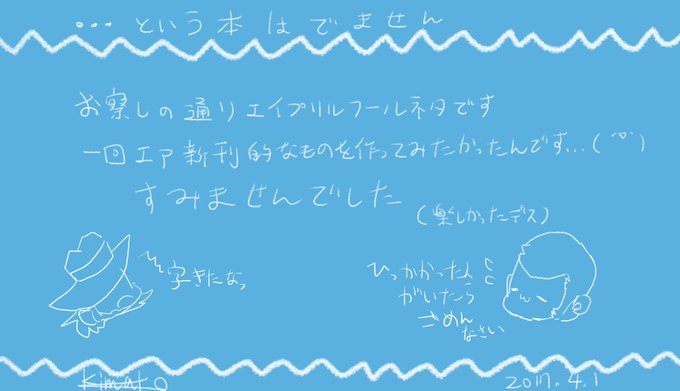 …という本はでません
お察しの通りエイプリルフールネタです
一回エア新刊的なものを作ってみたかったんです…(´`)
すみませんでした
(楽しかったデス)
字きたなっ
ひっかかった人
がいたら
ごめん
なさい
Kimako
2017.4.1